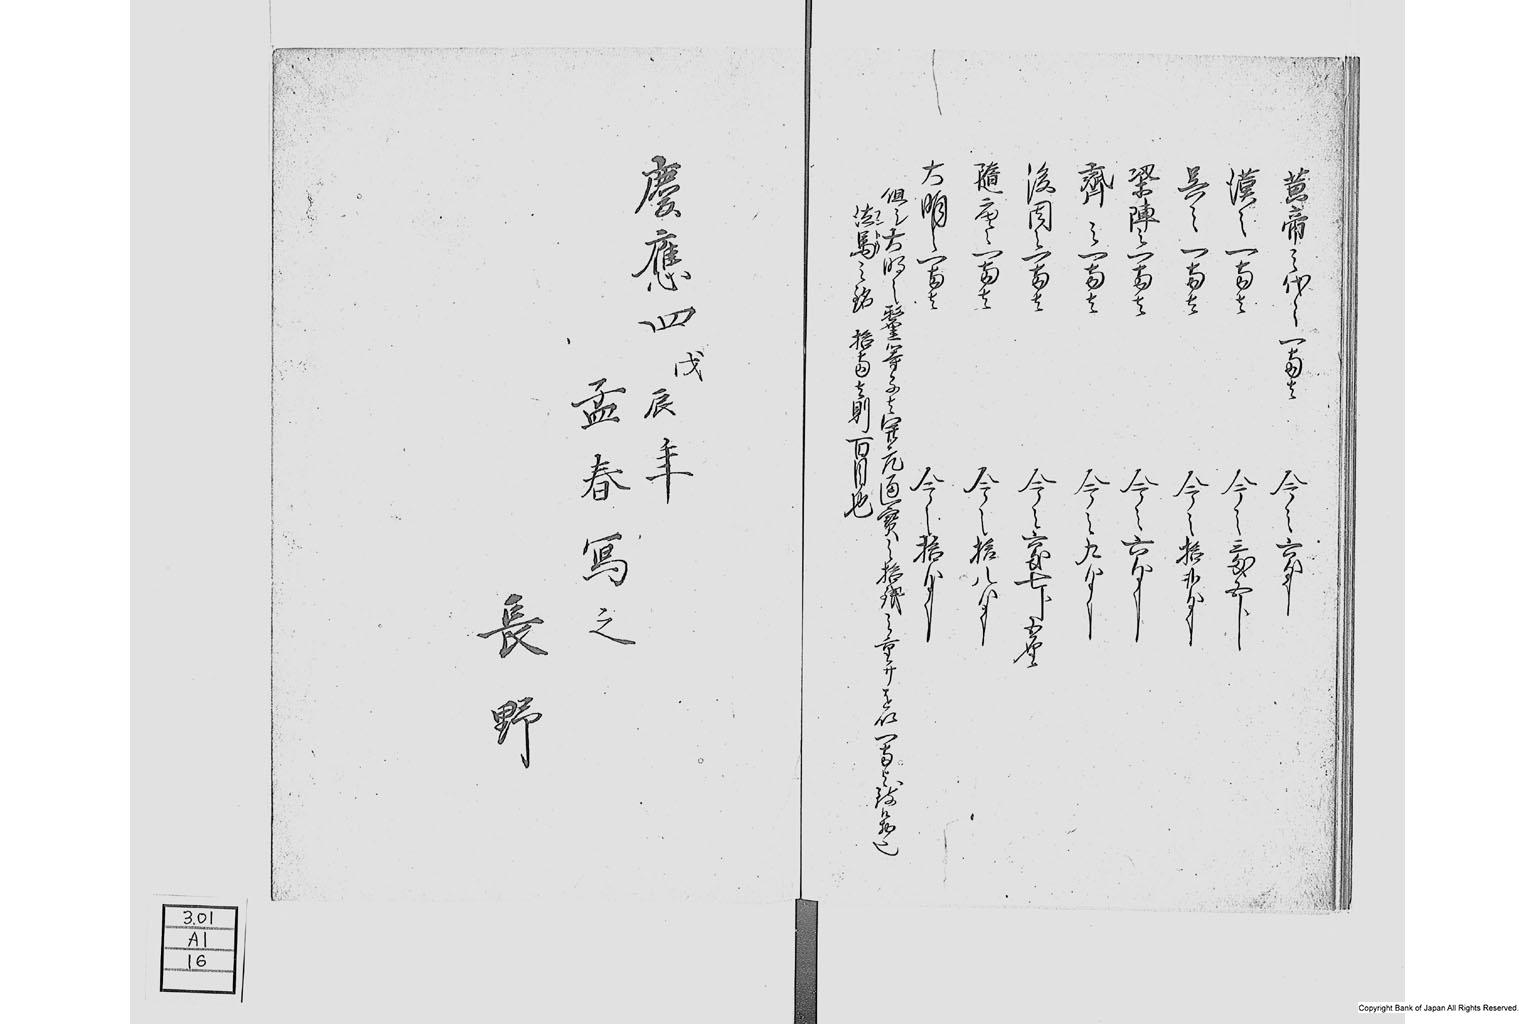 黄帝之代之一両者 今之六匁
漢之一両者 今之三匁五分
呉之一両者 今之拾弐匁
梁陳之一両者 今之六匁
齊之一両者 今之九匁
後周之一両者 今之六匁七分五厘
隨唐之一両者 今之拾八匁
大明之一両者 今之拾匁
但シ大明之 等子者開元通寳之拾銭之重サを以一両と
法馬之銘拾両者則百目也
慶應四戊辰年
孟春寫之
長野
3.01
A1
16
Copyright Bank of Japan All Rights Reserved.